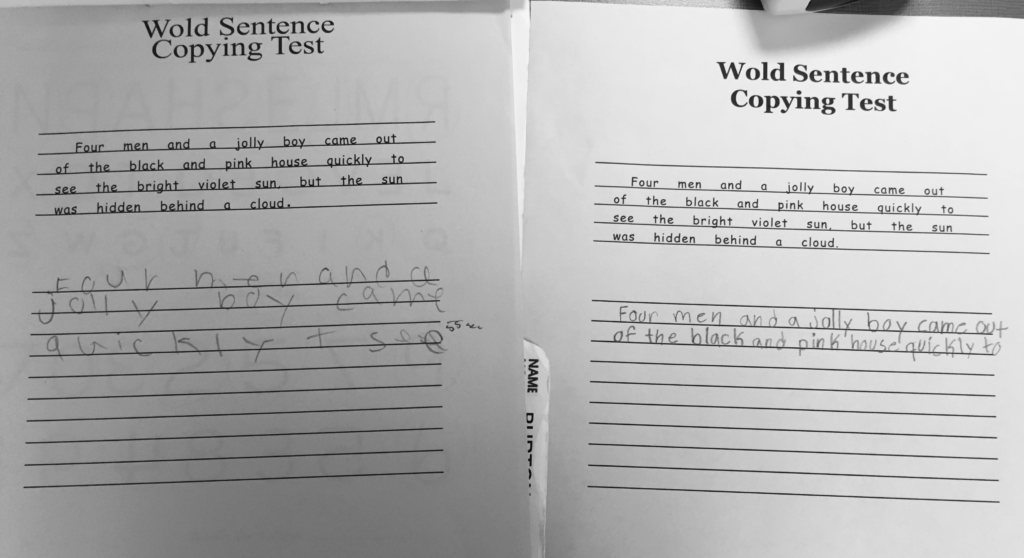 Wold Sentence
Copying Test
Four men and a jolly boy came out
of the black and pink house quickly to
see the bright violet sun, but the sun
was hidden behind a cloud.
Four men and a
jolly boy came
quickly t see
55 sec
NAME
Wold Sentence
Copying Test
Four men and a jolly boy came out
of the black and pink house quickly to
see the bright violet sun, but the sun
was hidden behind a cloud.
Four men and a jolly boy came out
of the black and pink house quickly to